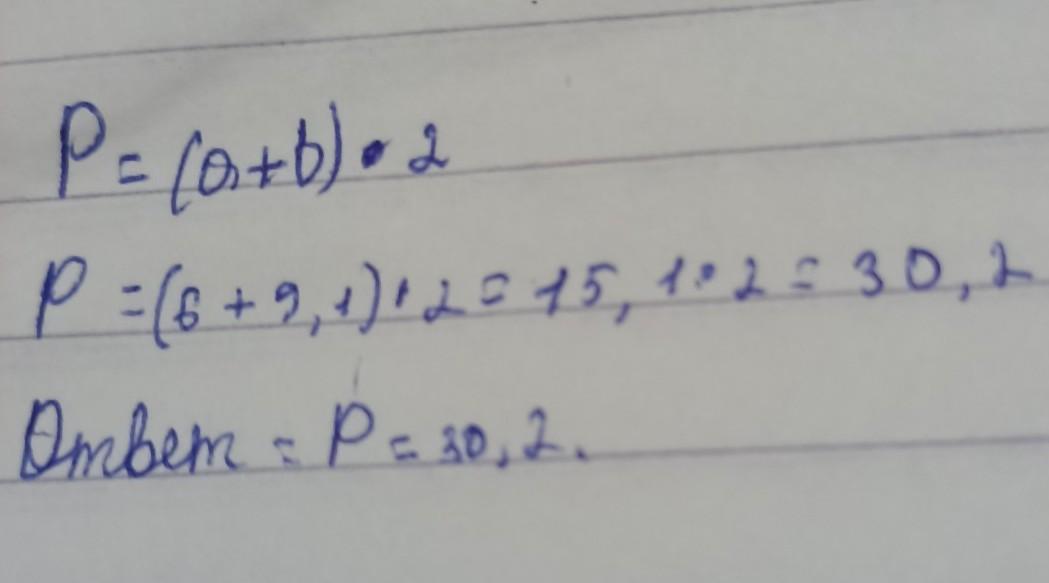 P = (a+b) • 2
P = (6 + 9,1) • 2 = 15,1 • 2 = 30,2
Ответ = P = 30,2.